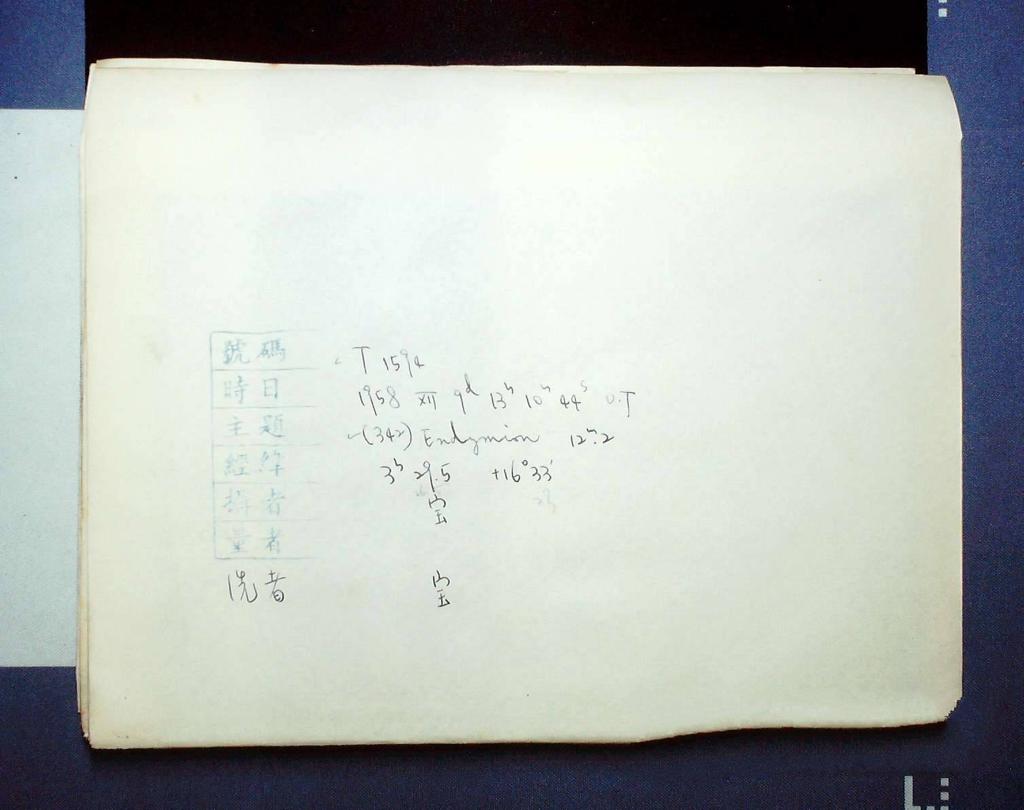 號碼 T 1594
時日 1958 XII 9d 13h 10m 44s U.T
主題 (342) Endymion 12m.2
經緯 3h 29.5 +16°33'
攝者 宝
量者
洗者 宝